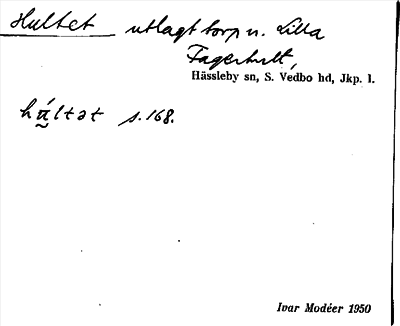 Hultet utlagt torp u. Lilla
Fagerhult,
Hässleby sn, S. Vedbo hd, Jkp. l.
hú̬ltət s. 168.
Ivar Modéer 1950